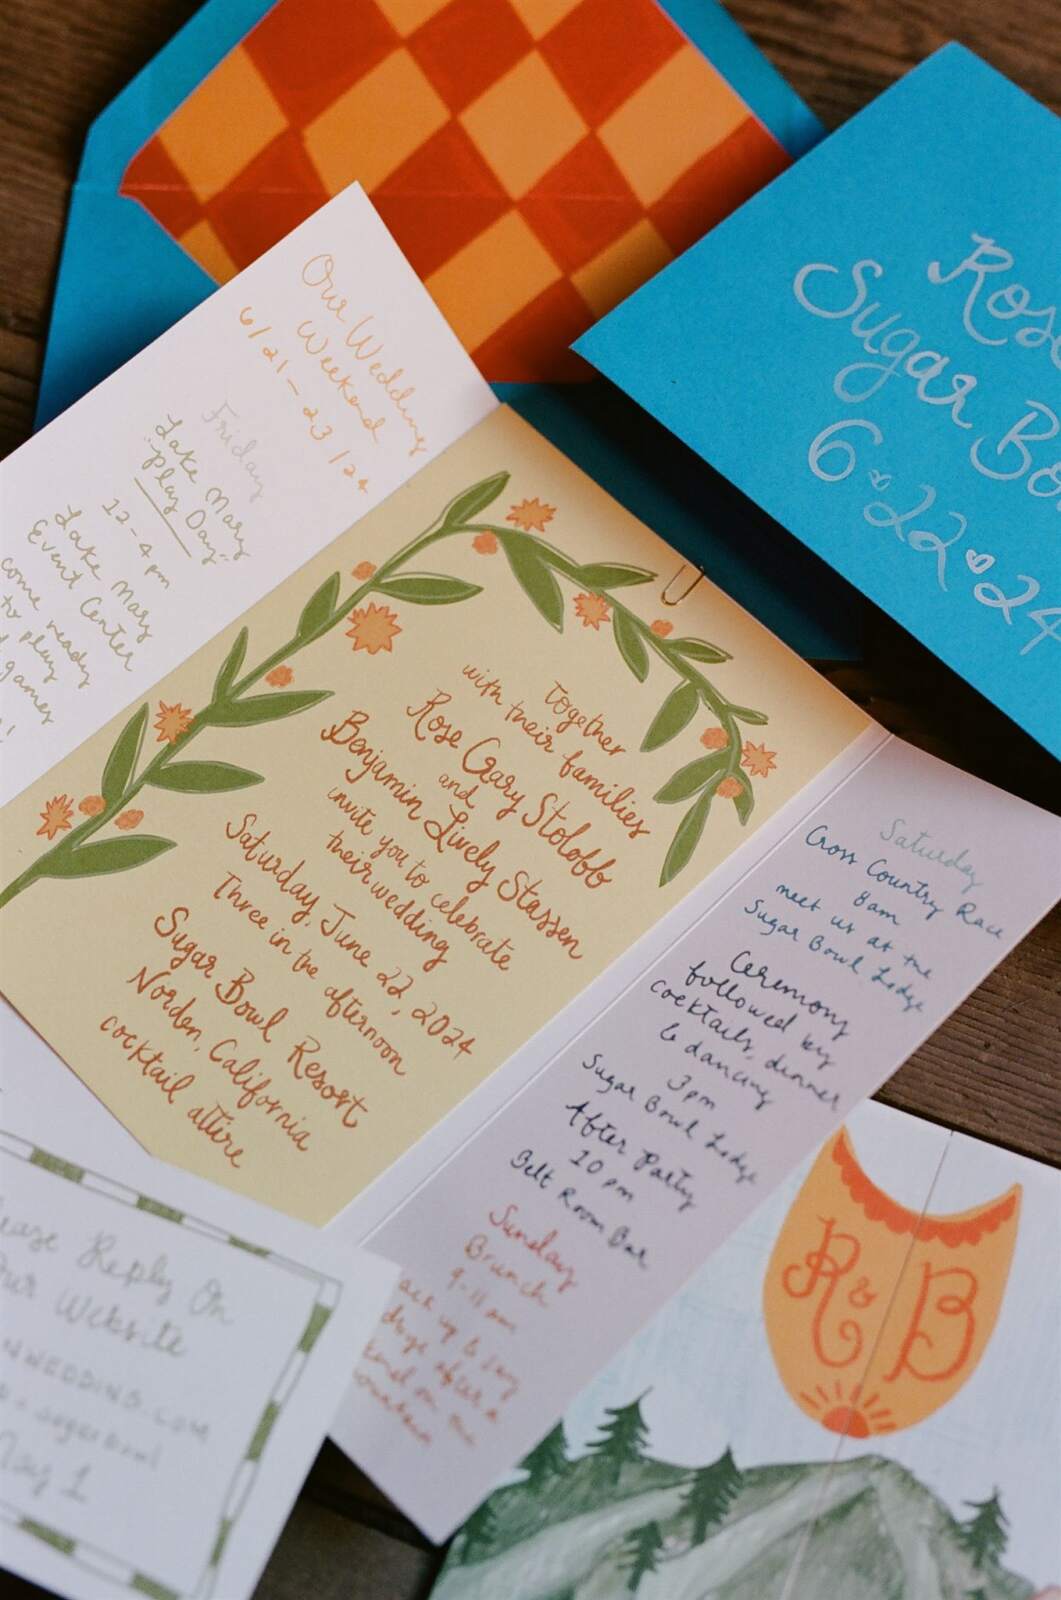 Our Wedding
Weekend
6/21 - 23/24
Friday
Lake Mary
Play Day
12-4pm
Lake Mary
Event Center
come ready
to play
games
Sugar Bo
6 22 24
together
with their families
Rose Gary Stolobb
and
Benjamin Lively Stassen
invite you to celebrate
their wedding
Saturday, June 22, 2024
Three in the afternoon
Sugar Bowl Resort
Norden, California
cocktail attire
Saturday
Cross Country Race
8am
meet us at the
Sugar Bowl Lodge
Ceremony
followed by
cocktails, dinner
& dancing
3pm
Sugar Bowl Lodge
After Party
10pm
Belt Room Bar
Sunday
Brunch
9-11am
Reply On
Website
1
R & B